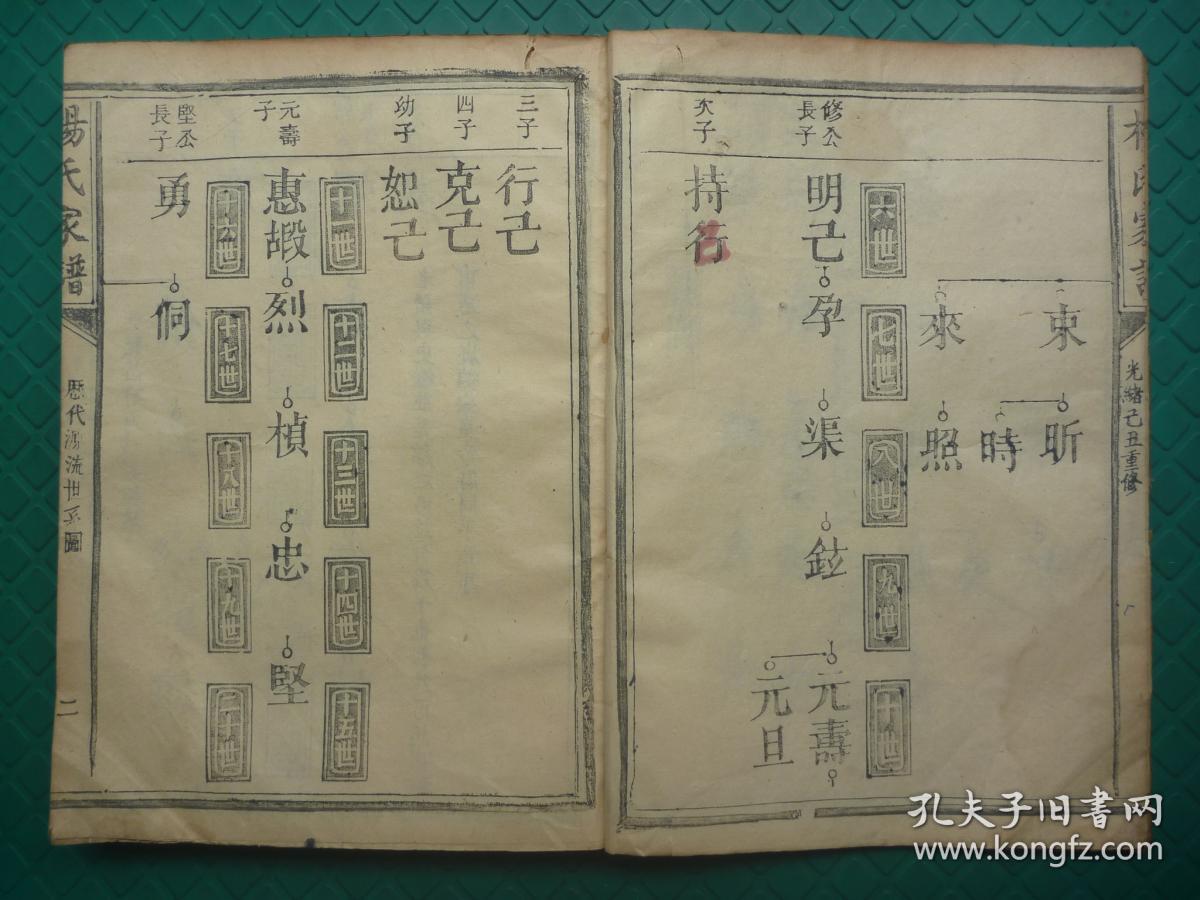 光緒己丑重修
束
昕
時
來
照
六世
七世
八世
九世
十世
修公長子
明己
孕
渠
鉝
元壽
元旦
次子
持行
三子
行己
四子
克己
幼子
恕己
十一世
十二世
十三世
十四世
十五世
元壽子
惠嘏
烈
楨
忠
堅
十六世
十七世
十八世
十九世
二十世
堅公長子
勇
侗
楊氏家譜
歷代源流世系圖
二
孔夫子旧书网
www.kongfz.com